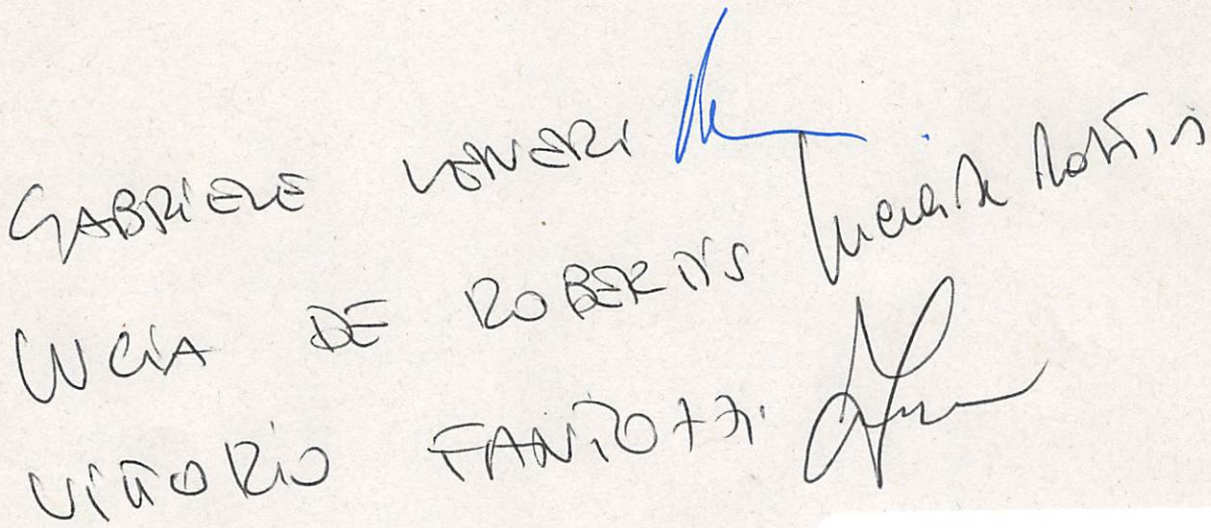 GABRIELE VENERI
LUCIA DE ROBERTIS Lucia De Robertis
VITTORIO FANTOZZI